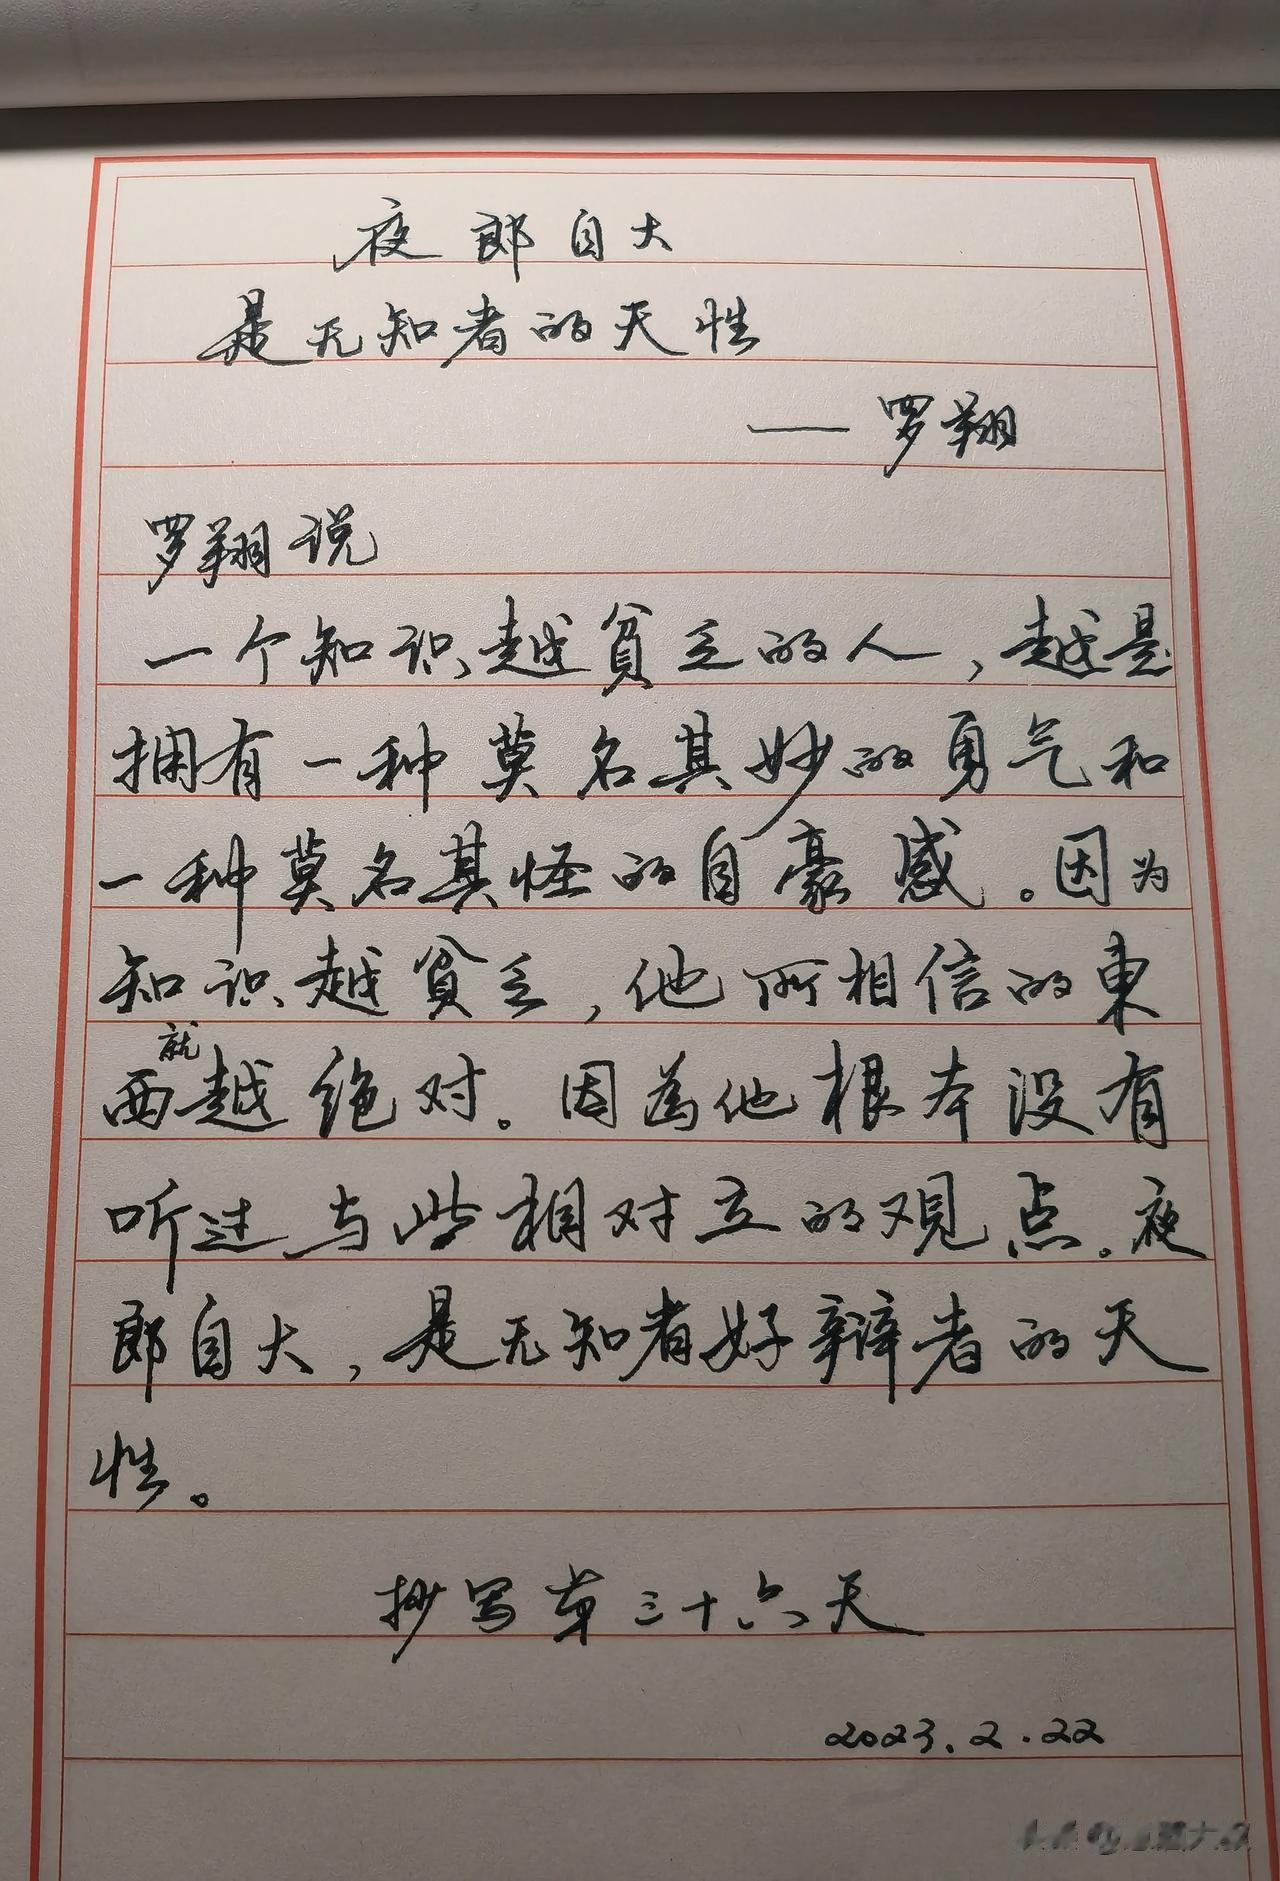 夜郎自大
是无知者的天性
——罗翔
罗翔说
一个知识越貧乏的人，越是
拥有一种莫名其妙的勇气和
一种莫名其怪的自豪感。因为
知识越貧乏，他所相信的東
西就越绝对。因為他根本没有
听过与些相对立的观点。夜
郎自大，是无知者好辩者的天
性。
抄写第三十六天
2023.2.22